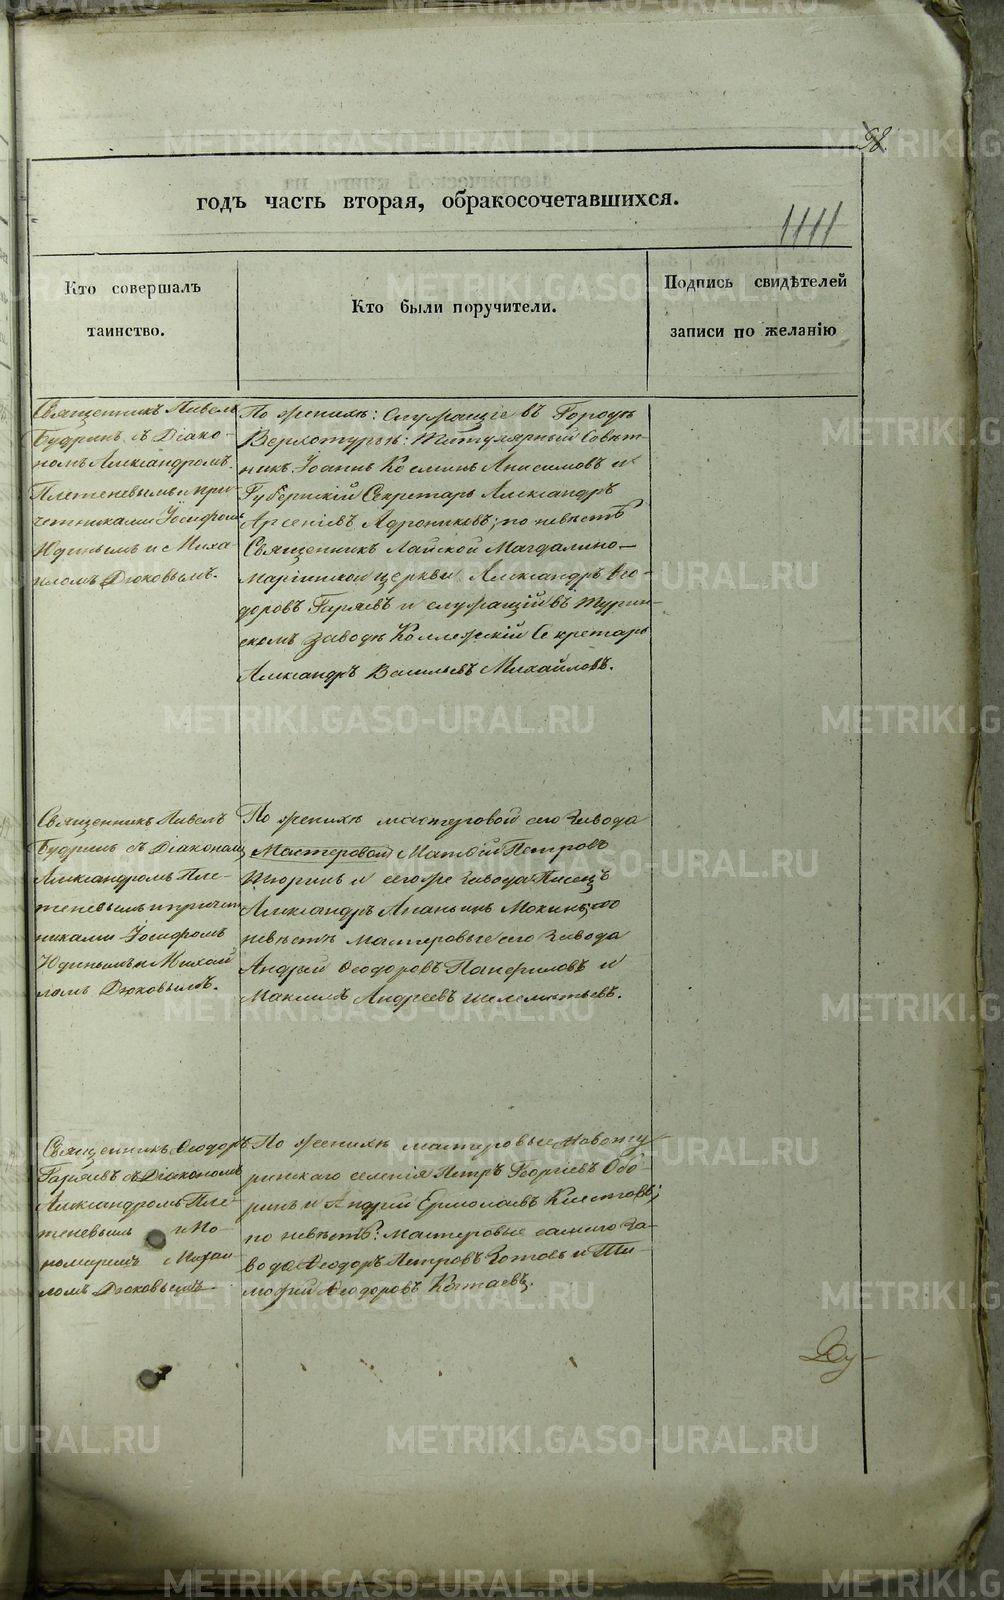 98.
годъ часть вторая, обракосочетавшихся.
1111
Кто совершалъ
таинство.
Кто были поручители.
Подпись свидѣтелей
записи по желанію
Священникъ Павелъ
Будринъ, съ Діако-
номъ Александромъ
Плетеневымъ и при-
четниками Іосифомъ
Юдинымъ и Миха-
иломъ Дюковымъ.
По женихѣ: служащіе въ Городѣ
Верхотурьѣ: Титулярный Совѣт-
никъ Іоаннъ Косминъ Анисимовъ и
Губернскій Секретарь Александръ
Арсеніевъ Адрониковъ; по невѣстѣ
Священникъ Лайской Магдалино-
маріинской церкви Александръ Ѳео-
доровъ Гаряевъ и служащій въ Турин-
скомъ заводѣ Коллежскій Секретарь
Александръ Васильевъ Михайловъ.
Священникъ Павелъ
Будринъ съ Діакономъ
Александромъ Пле-
теневымъ и причет
никами Іосифомъ
Юдинымъ и Михаи
ломъ Дюковымъ.
По женихѣ мастеровой сего Завода
Мастеровой Матвій Петровъ
и сегоже Завода Писецъ
Александръ Ананьинъ Мокинъ; по
невѣстѣ мастеровые сего Завода
Андрей Ѳеодоровъ Панфиловъ и
Максимъ Андреевъ Шелементьевъ.
Священникъ Ѳеодоръ
Гаряевъ съ Діакономъ
Александромъ Пле-
теневымъ и По-
номаремъ Михаи
ломъ Дюковымъ
По женихѣ мастеровые Новоту
ринскаго селенія Петръ Георгіевъ Обо-
ринъ и Андрей Ермолаевъ
по невѣстѣ: мастеровые самаго За-
вода Ѳеодоръ Петровъ Котовъ и Ти-
мофей Ѳеодоровъ Коптаевъ;
Ду-
METRIKI.GASO-URAL.RU